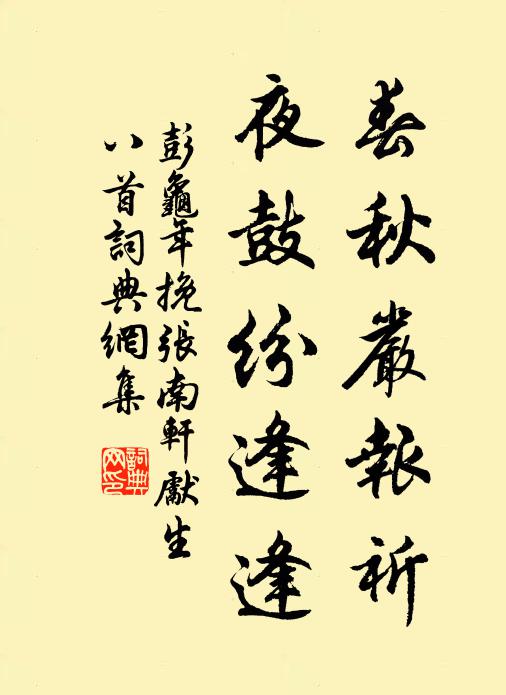 春秋嚴報祈
夜鼓紛逢逢
彭龜年挽張南軒獻生
八首詞典網集
詞典網印